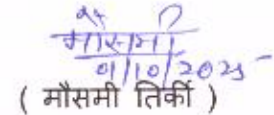 मौसमी
01/10/2025
( मौसमी तिर्की )